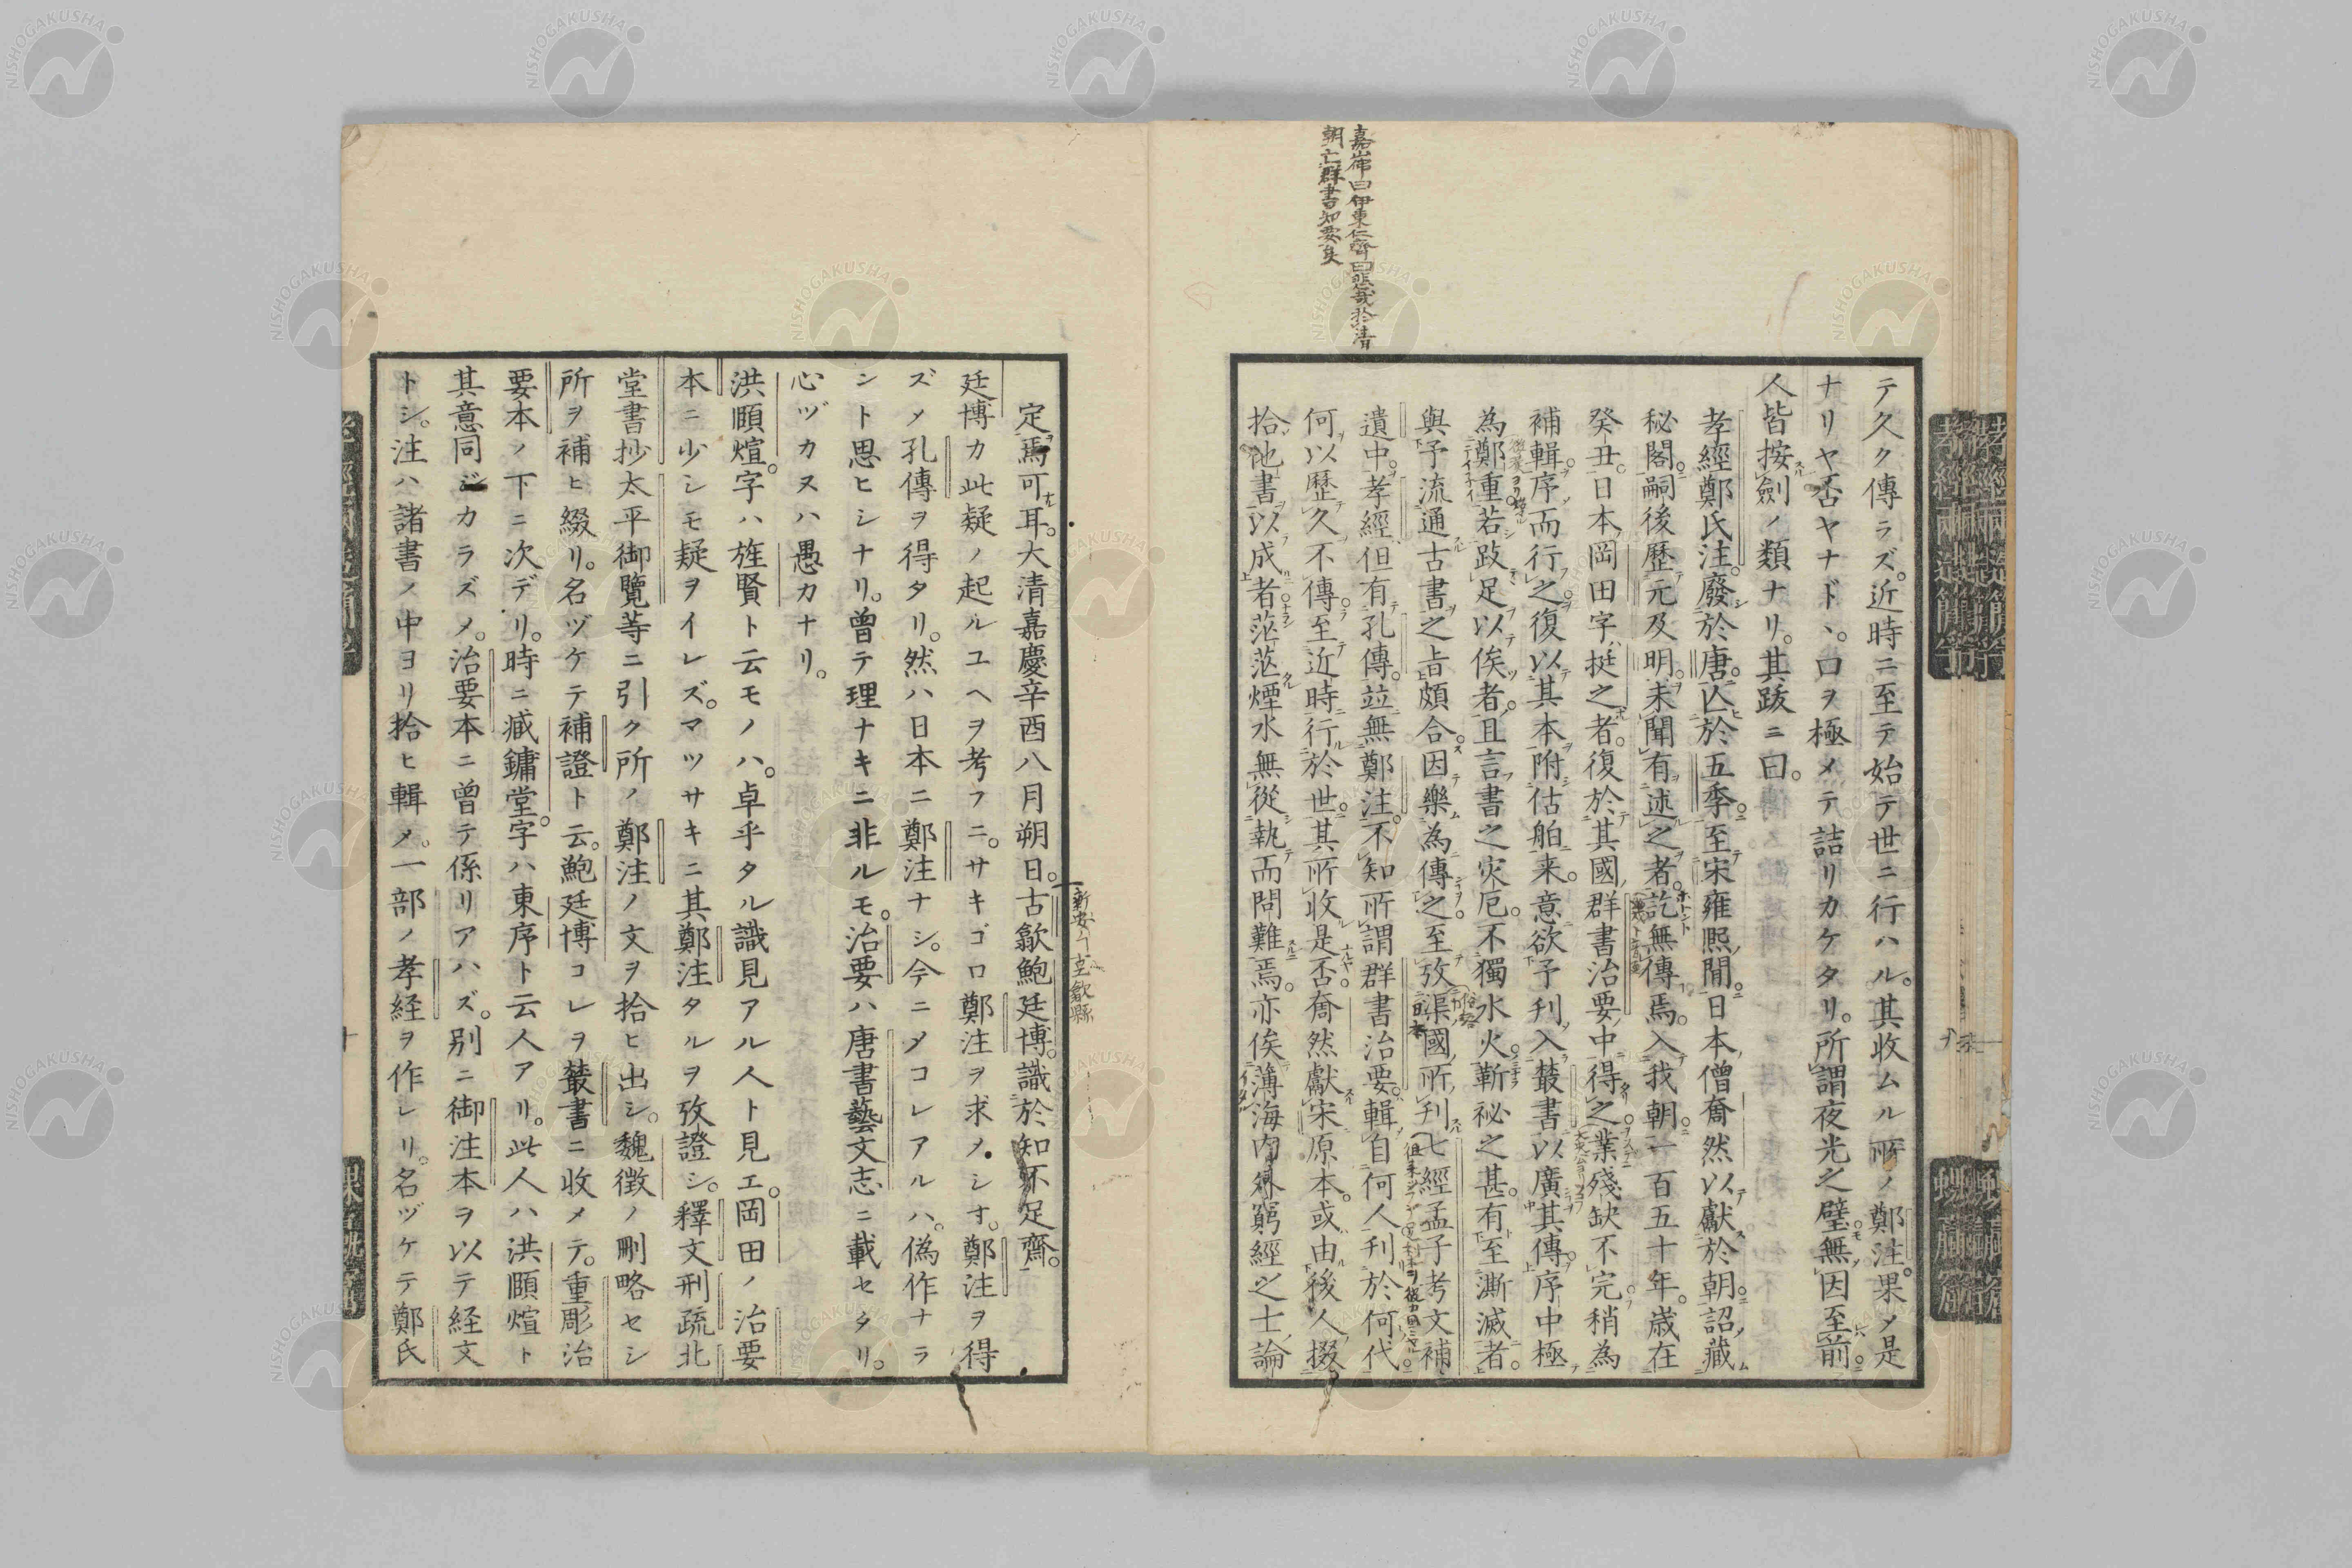 テ久ク傳ラズ。近時ニ至テ始テ世ニ行ハル。其收ムル所ノ鄭注。果メ是
ナリヤ否ヤナド、。口ヲ極メテ詰リカケタリ。所謂夜光之璧。無因至前。
人皆按劍ノ類ナリ。其跋ニ曰。
孝經鄭氏注。廢於唐。亾於五季。至宋雍熙閒。日本僧奝然以獻於朝。詔藏
秘閣。嗣後歷元及明。未聞有述之者。訖無傳焉。入我朝一百五十年。歲在
癸丑。日本岡田字挺之者。復於其國群書治要中得之。業殘缺不完。稍為
補輯。序而行之。復以其本附估舶来。意欲予刊入叢書以廣其傳。序中極
為鄭重。若跂足以俟者。且言書之灾厄。不獨水火。靳祕之甚。有至澌滅者。
與予流通古書之旨頗合。因樂為傳之。至攷渠國所刊七經孟子考文補
遺中。孝經但有孔傳。竝無鄭注。不知所謂群書治要。輯自何人刊於何代
何以歷久不傳。至近時行於世。其所收是否奝然獻宋原本。或由後人掇
拾他書以成者。茫茫煙水無從執而問難焉。亦俟薄海内外窮經之士論
嘉山帶曰伊東仁齋曰悲哉於清
朝亡群書知要矣
定焉可耳。大清嘉慶辛酉八月朔日。古歙鮑廷博。識於知不足齋。
新安ハ古歙縣
廷博カ此疑ノ起ルユヘヲ考フニ。サキゴロ鄭注ヲ求メシオ。鄭注ヲ得
ズメ孔傳ヲ得タリ。然ハ日本ニ鄭注ナシ。今ニメコレアルハ。偽作ナラ
シト思ヒシナリ。曾テ理ナキニ非ルモ。治要ハ唐書藝文志ニ載セタリ。
心ヅカヌハ愚カナリ。
洪頤煊。字ハ旌賢ト云モノハ。卓乎タル識見アル人ト見エ。岡田ノ治要
本ニ少シモ疑ヲイレズ。マツサキニ其鄭注タルヲ攷證シ。釋文刑疏北
堂書抄太平御覽等ニ引ク所ノ鄭注ノ文ヲ拾ヒ出シ。魏徴ノ刪略セシ
所ヲ補ヒ綴リ。名ヅケテ補證ト云。鮑廷博コレヲ叢書ニ收メテ。重彫治
要本ノ下ニ次デリ。時ニ臧鏞堂。字ハ東序ト云人アリ。此人ハ洪頤煊ト
其意同ジカラズメ。治要本ニ曾テ係リアハズ。別ニ御注本ヲ以テ経文
トシ。注ハ諸書ノ中ヨリ拾ヒ輯メ。一部ノ孝経ヲ作レリ。名ヅケテ鄭氏